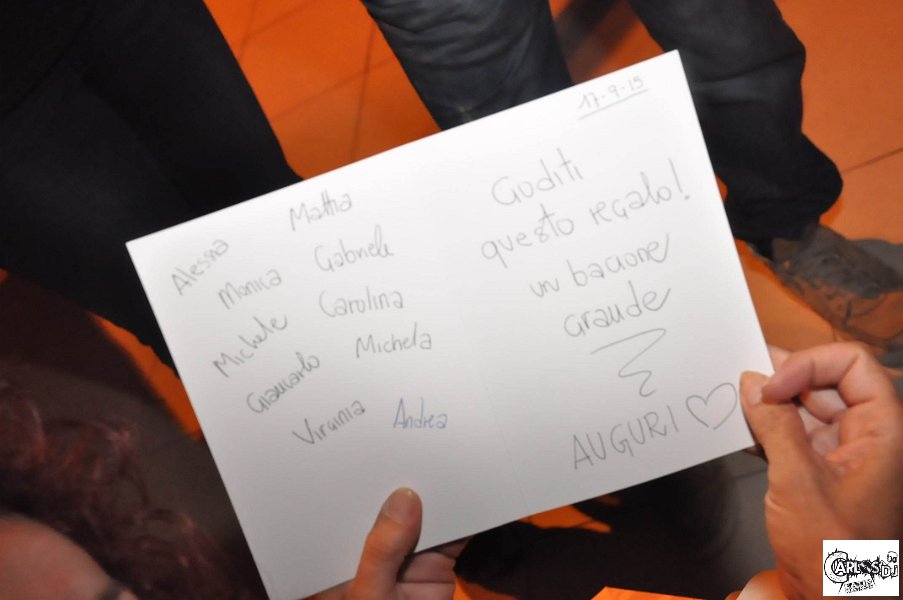 Alessia
Mattia
Monica
Gabriele
Michele
Carolina
Giancarlo
Michela
Virginia
Andrea
17-9-15
Goditi
questo regalo!
un bacione
grande
AUGURI
CARLOS DJ